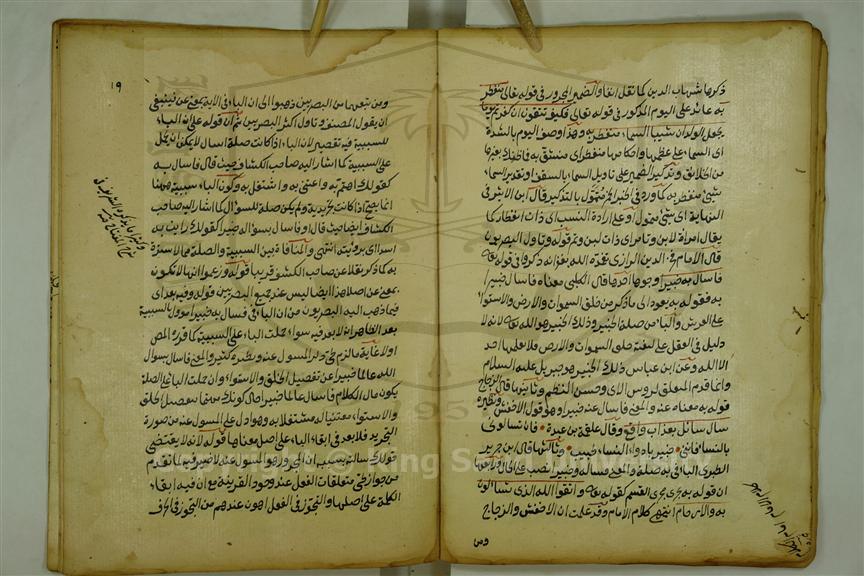 ذكرها شهاب الدين كما نقل انفا والضمير المجرور في قوله تعالى منفطر
به عائد على اليوم المذكور في قوله تعالى فكيف تتقون ان كفرتم يوما
يجعل الولدان شيبا السماء منفطر به وهذا وصف اليوم بالشدة
اي السماء على عظمها واحكامها منفطر اي منشق به فما ظنك بغيرها
من الخلائق وتذكير الضمير على تاويل السماء بالسقف او تقدير السماء
شيئ منفطر به كما ورد في الخبر بالتذكير قال ابن الاثير في
النهاية اي شيئ متمول او على ارادة النسب اي ذات انفطار كما
يقال امراة لابن وتامر اي ذات لبن وتمر قوله وتاول البصريون
قال الامام فخر الدين الرازي تغمده الله بغفرانه ذكروا في قوله تعالى
فاسال به خبيرا وجوها احدها قال الكلبي معناه فاسال خبيرا
به فقوله به يعود الى ما ذكر من خلق السموات والارض والاستواء
على العرش والباء من صلة الخبير وذلك الخبير هو الله تعالى لانه لا
دليل في العقل على كيفية خلق السموات والارض فلا يعلمها احد
الا الله وعن ابن عباس ذلك الخبير هو جبريل عليه السلام
وانما قدم المتعلق لرؤس الاي وحسن النظم وثانيها قال الزجاج
قوله به معناه عنه والمعنى فاسال عنه خبيرا وهو قول الاخفش ونظيره
سال سائل بعذاب واقع وقال علقمة بن عبدة فان تسالوني
بالنساء فانني خبير بادواء النساء طبيب وثالثها قال ابن جرير
الطبري الباء في به صلة والمعنى فساله وخبيرا نصب على الحال ورابعها
ان قوله به يجري مجرى القسم كقوله تعالى واتقوا الله الذي تسائلون
به والارحام انتهى كلام الامام وقد علمت ان الاخفش والزجاج
ومن
١٩
ومن تبعهما من البصريين ذهبوا الى ان الباء في الاية بمعنى عن فينبغي
ان يقول المصنف وتاول اكثر البصريين ثم ان قوله على ان الباء
للسببية فيه تقصير لان الباء اذا كانت صلة اسال لا يمكن ان تحمل
على السببية كما اشار اليه صاحب الكشاف حيث قال فاسال به
كقولك اهتم به واعتنى به واشتغل به وكون الباء سببية ههنا
انما يصح اذا كانت تجريدية ولم يكن صلة للسؤال كما اشار اليه صاحب
الكشاف ايضا حيث قال او فاسال بسؤاله خبيرا كقولك رايت به
اسدا اي برؤيته انتهى والمنافاة بين السببية والصلة مما لا سترة
به كما ذكر نقلا عن صاحب الكشف قريبا قوله وزعموا انها لا تكون
بمعنى عن اصلا هذا ايضا ليس عند جميع البصريين قوله وفيه بعد اي
فيما ذهب اليه البصريون من ان الباء في فسال به خبيرا للسببية
بعد الظاهر انه لا بعد فيه سواء حملت الباء على السببية كما قرره المص
اولا غاية ما لزم حذف المسول عنه ونظيره كثير والمعنى فاسال بسؤال
الله عالما خبيرا عن تفصيل الخلق والاستواء وان حملت الباء على الصلة
يكون مال الكلام فاسال عالما خبيرا حال كونك مهتما بتفصيل الخلق
والاستواء معتنيا له مشتغلا به وهو ادل على المسول عنه من صورة
التجريد فلا بعد في ابقاء الباء على اصل معناها قوله لانه لا يقتضي
قولك سالت بسبب ان المجرور هو المسول عنه لا ضير فيه لما تقدم
من جواز طي متعلقات الفعل عند وجود القرينة مع ان فيه ابقاء
الكلمة على اصلها والتجوز في الفعل اهون عندهم من التجوز في الحرف
Copyright © King Saud University